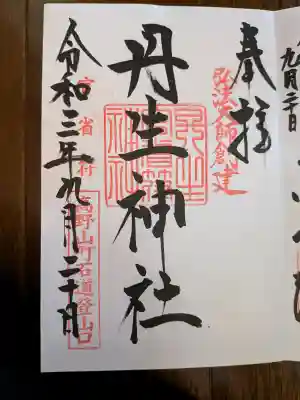 九月二日
奉拝
弘法大師創建
丹生神社
慈尊院村
高野山町石道登山口
令和三年九月二十日